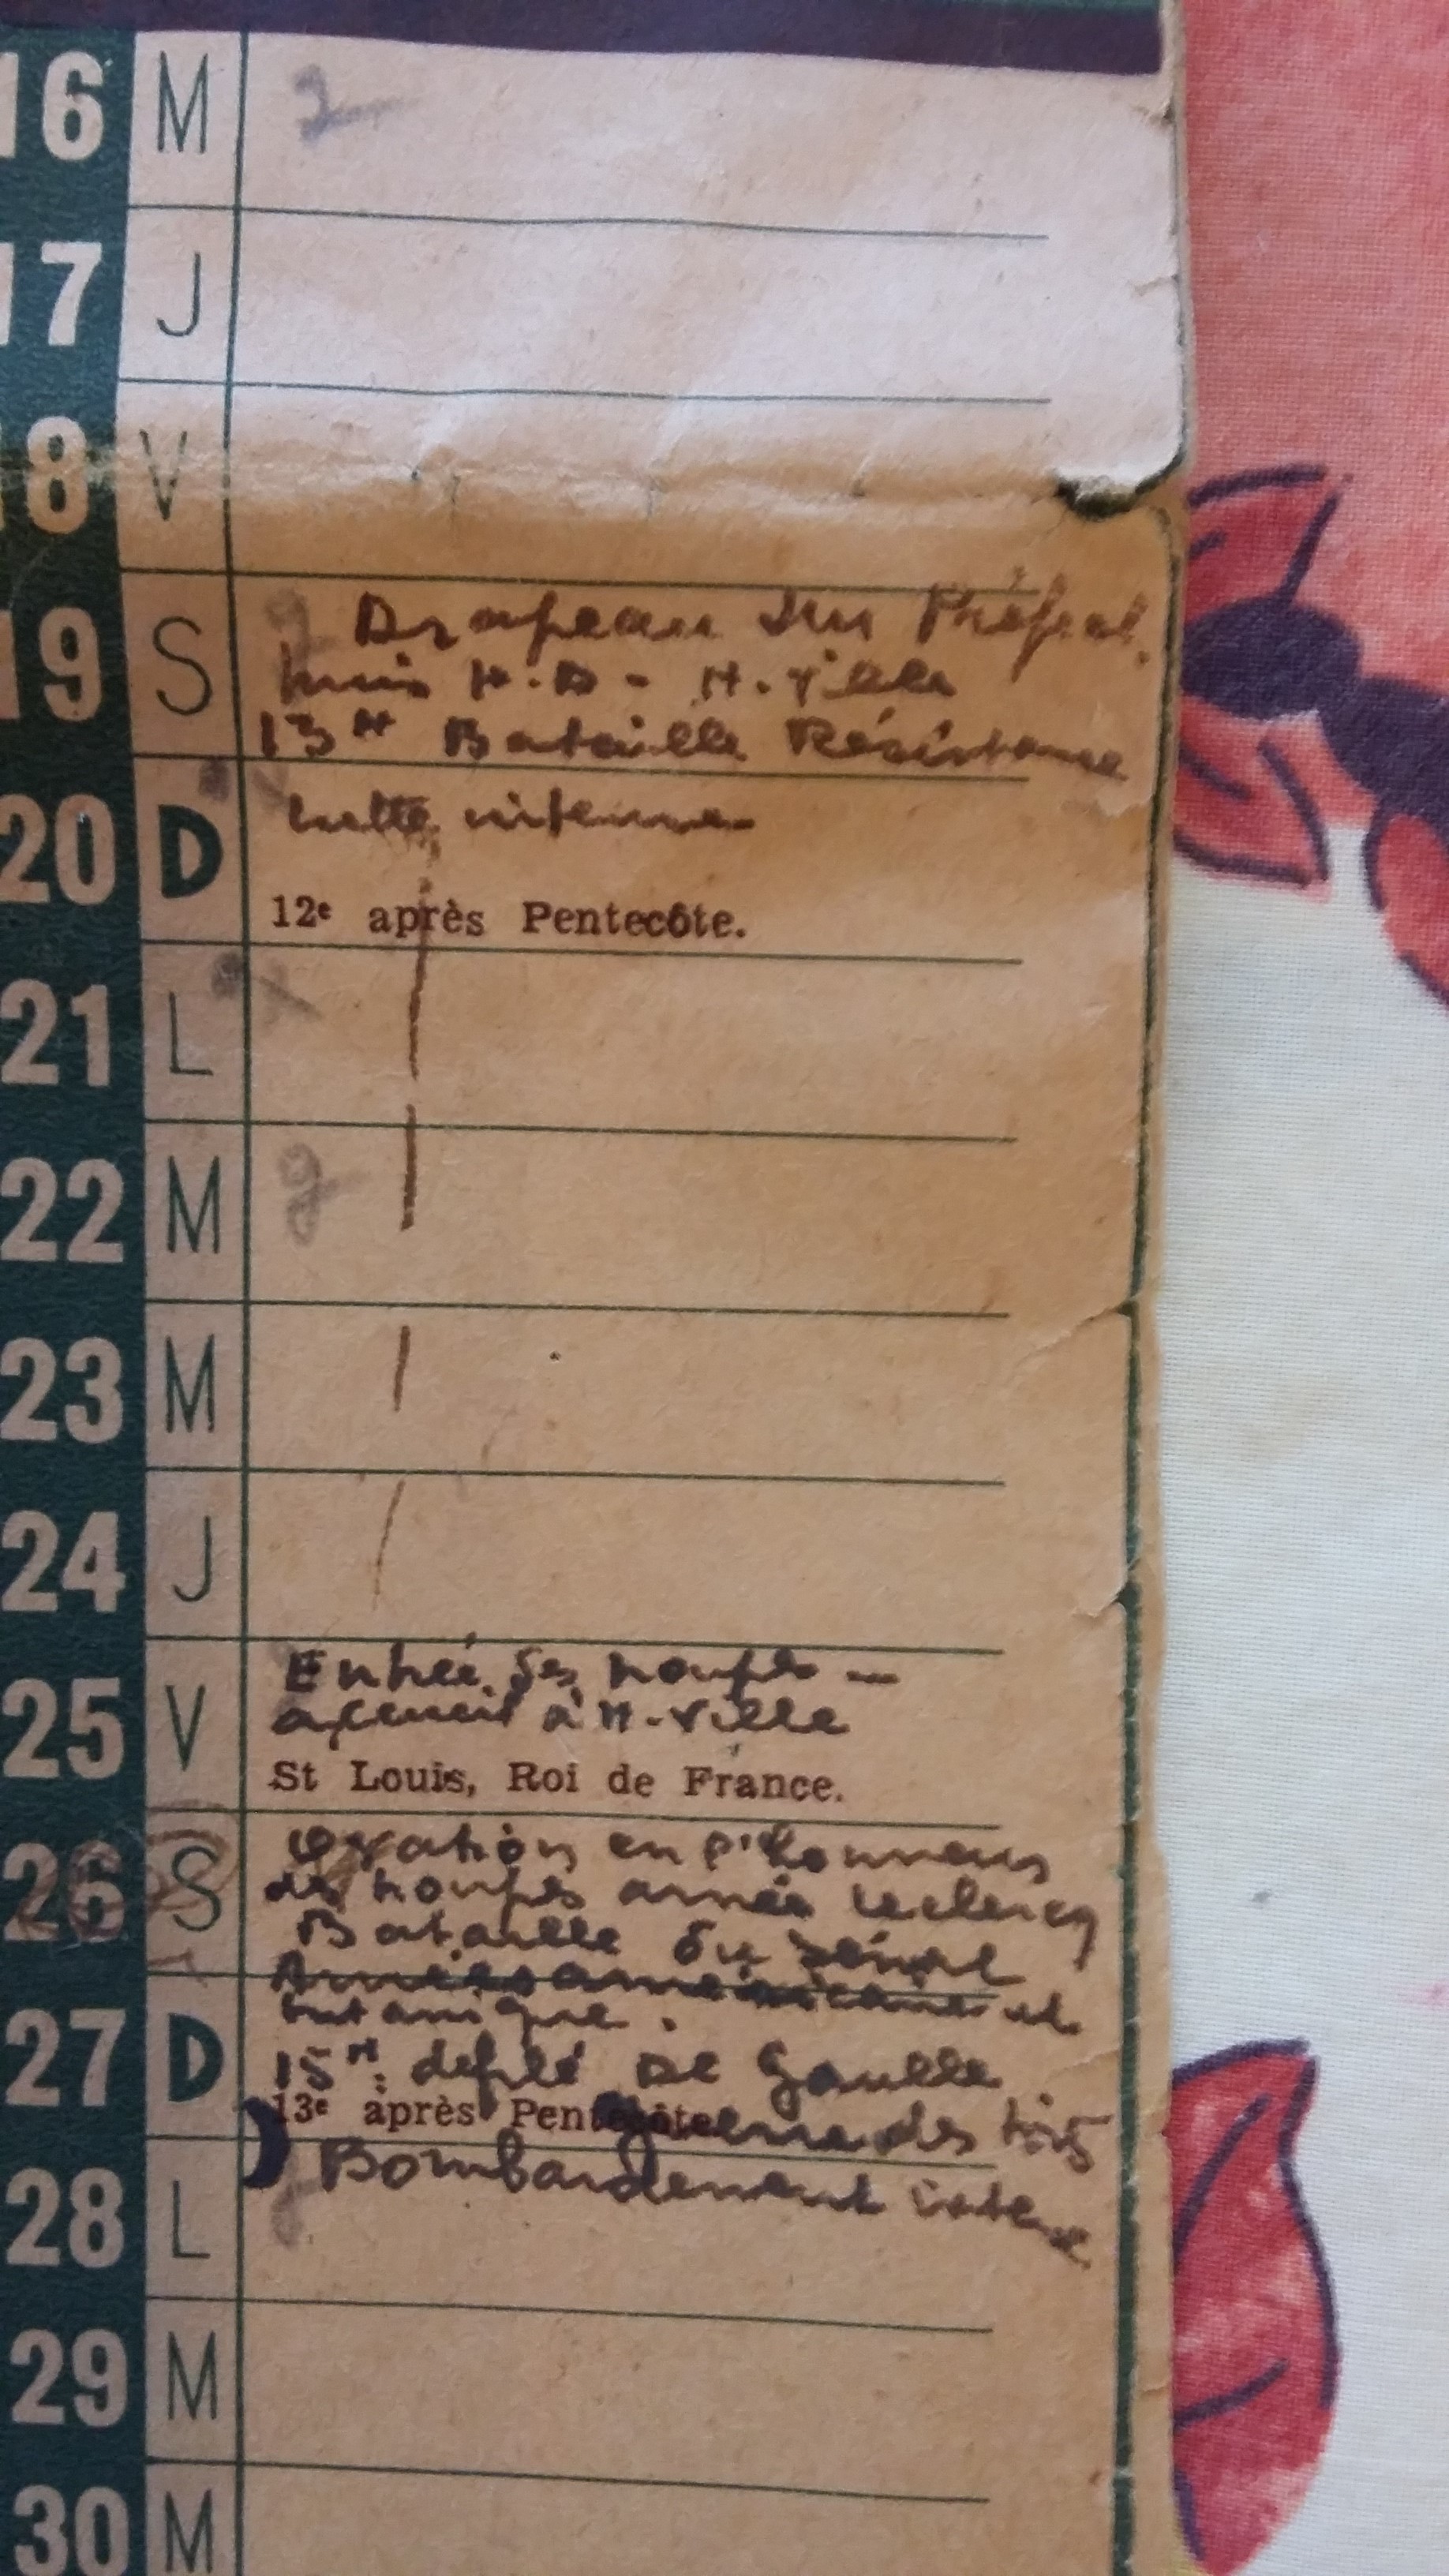 16 M 2
17 J
18 V
19 S Drapeau sur Préfect.
puis N.D - H. Ville
13 H Bataille Résistance
20 D Lutte intense
12e après Pentecôte.
21 L
22 M
23 M
24 J
25 V Entrée des troupes —
accueil à H. Ville
St Louis, Roi de France.
26 S Ovation en l'honneur
des troupes armée Leclercq
Bataille du Sénat
Armées américaine et
britanique.
27 D 15 H: défilé De Gaulle.
13e après Pentecôte des toits
28 L Bombardement intense
29 M
30 M